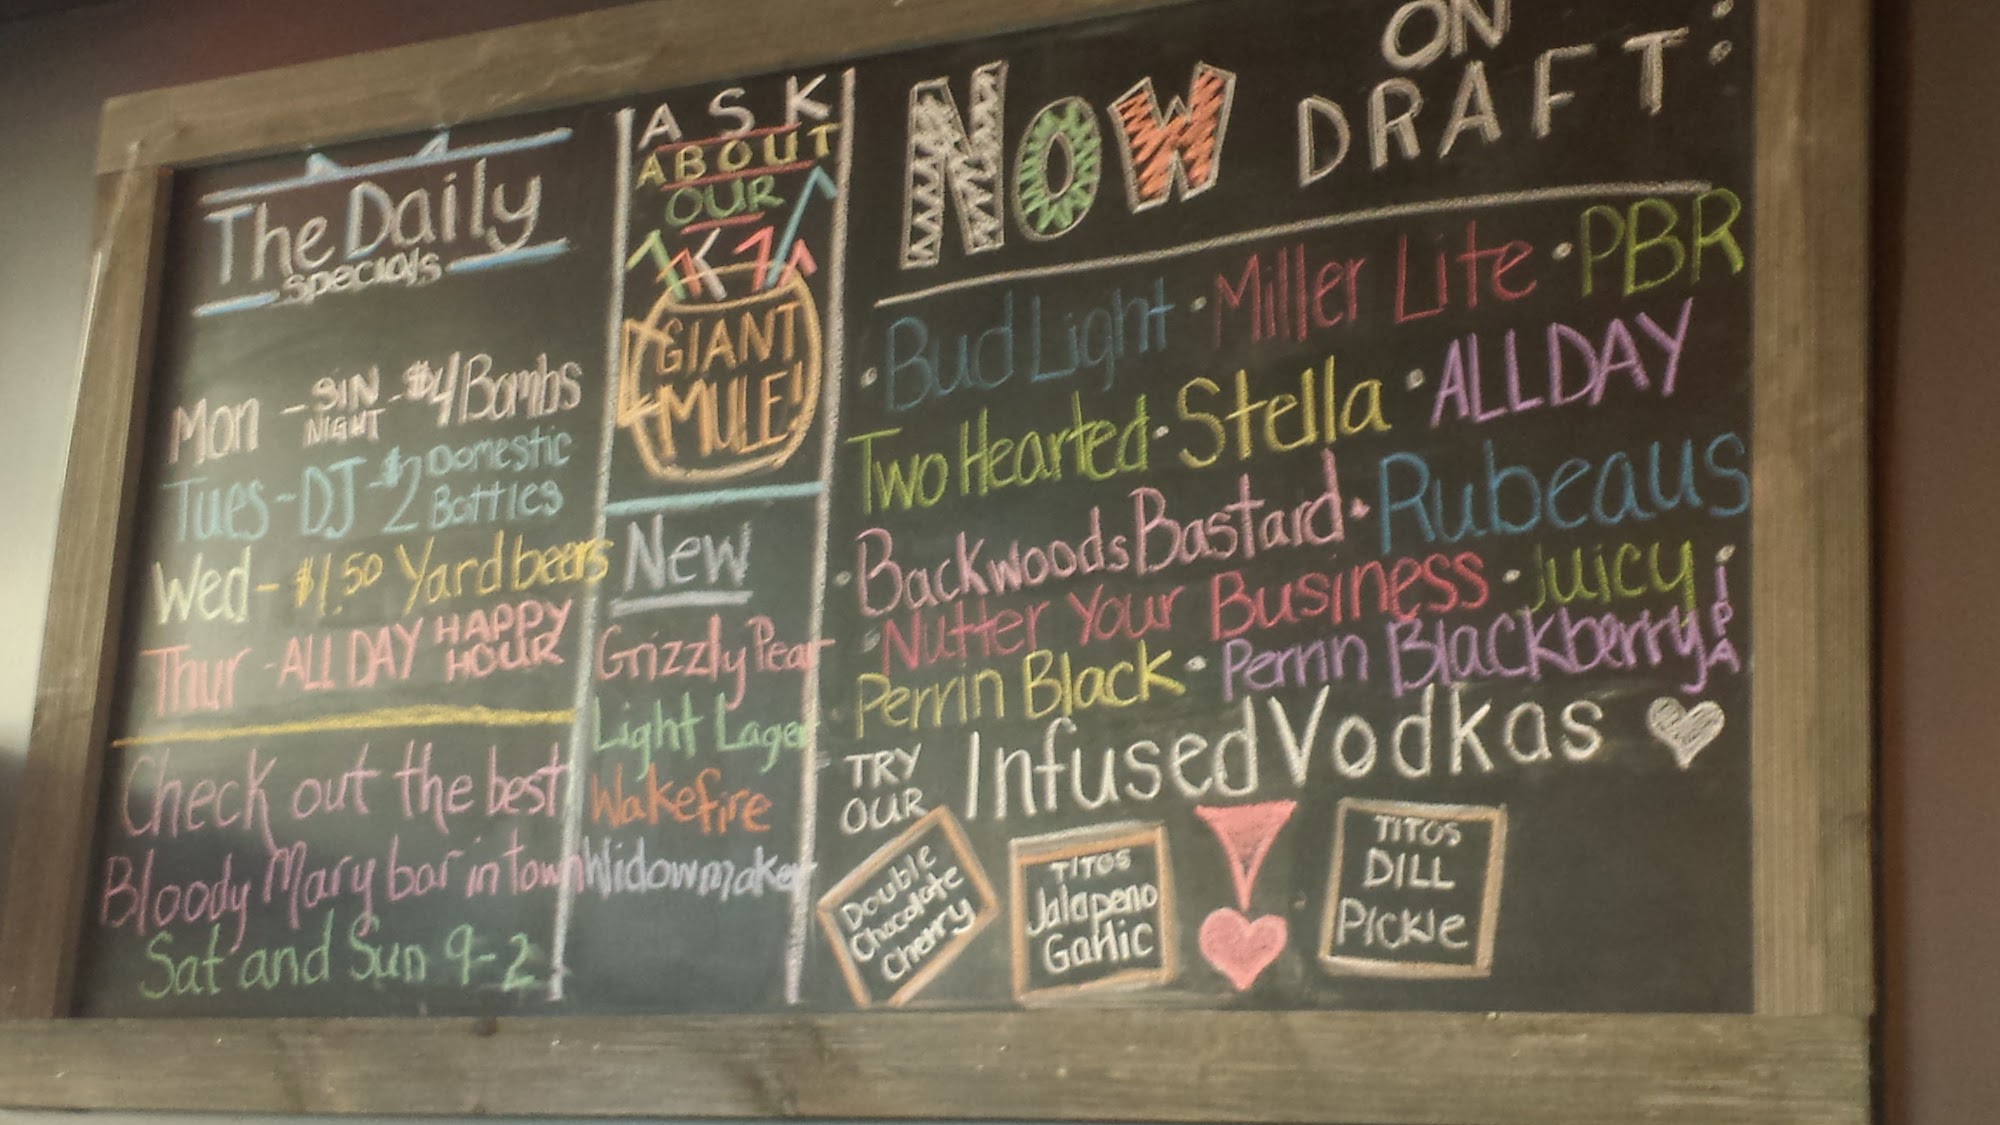 The Daily
specials
Mon - SIN NIGHT - $4 Bombs
Tues - DJ - $2 Domestic Bottles
Wed - $1.50 Yard beers
Thur - ALL DAY HAPPY HOUR
Check out the best
Bloody Mary bar in town
Sat and Sun 9-2
ASK
ABOUT
OUR
GIANT
MULE!
New
Grizzly Pear
Light Lager
Wakefire
Widowmaker
NOW ON DRAFT:
• Bud Light • Miller Lite • PBR
Two Hearted • Stella • ALLDAY
• Backwoods Bastard • Rubeaus
• Nutter Your Business • Juicy IPA
Perrin Black • Perrin Blackberry
TRY OUR Infused Vodkas
Double
Chocolate
Cherry
TITOS
Jalapeno
Garlic
TITOS
DILL
Pickle